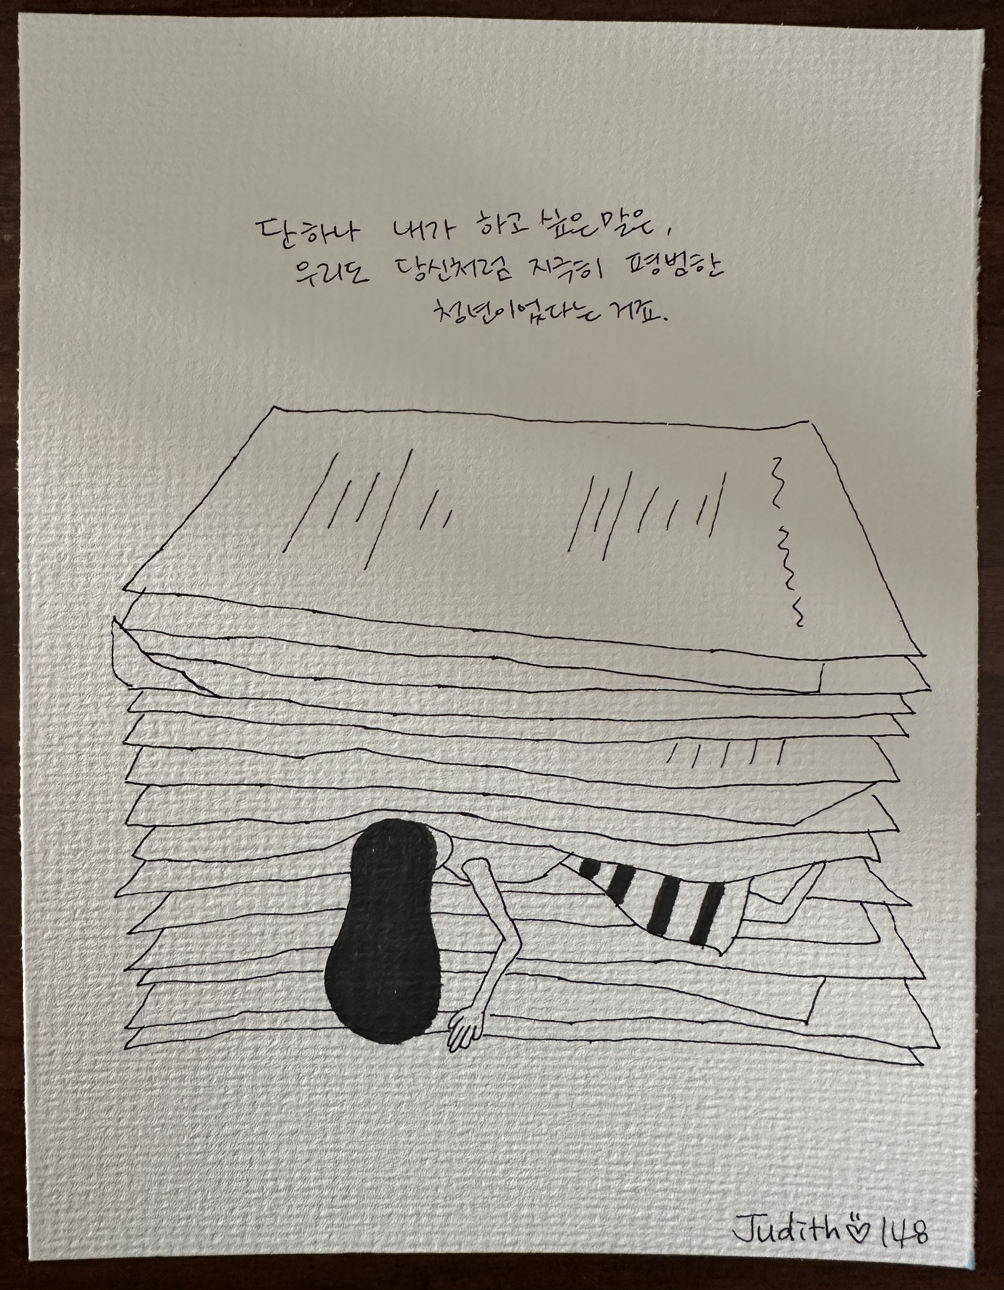 단하나 내가 하고 싶은 말은,
우리도 당신처럼 지극히 평범한
청년이었다는 거죠.
Judith 148